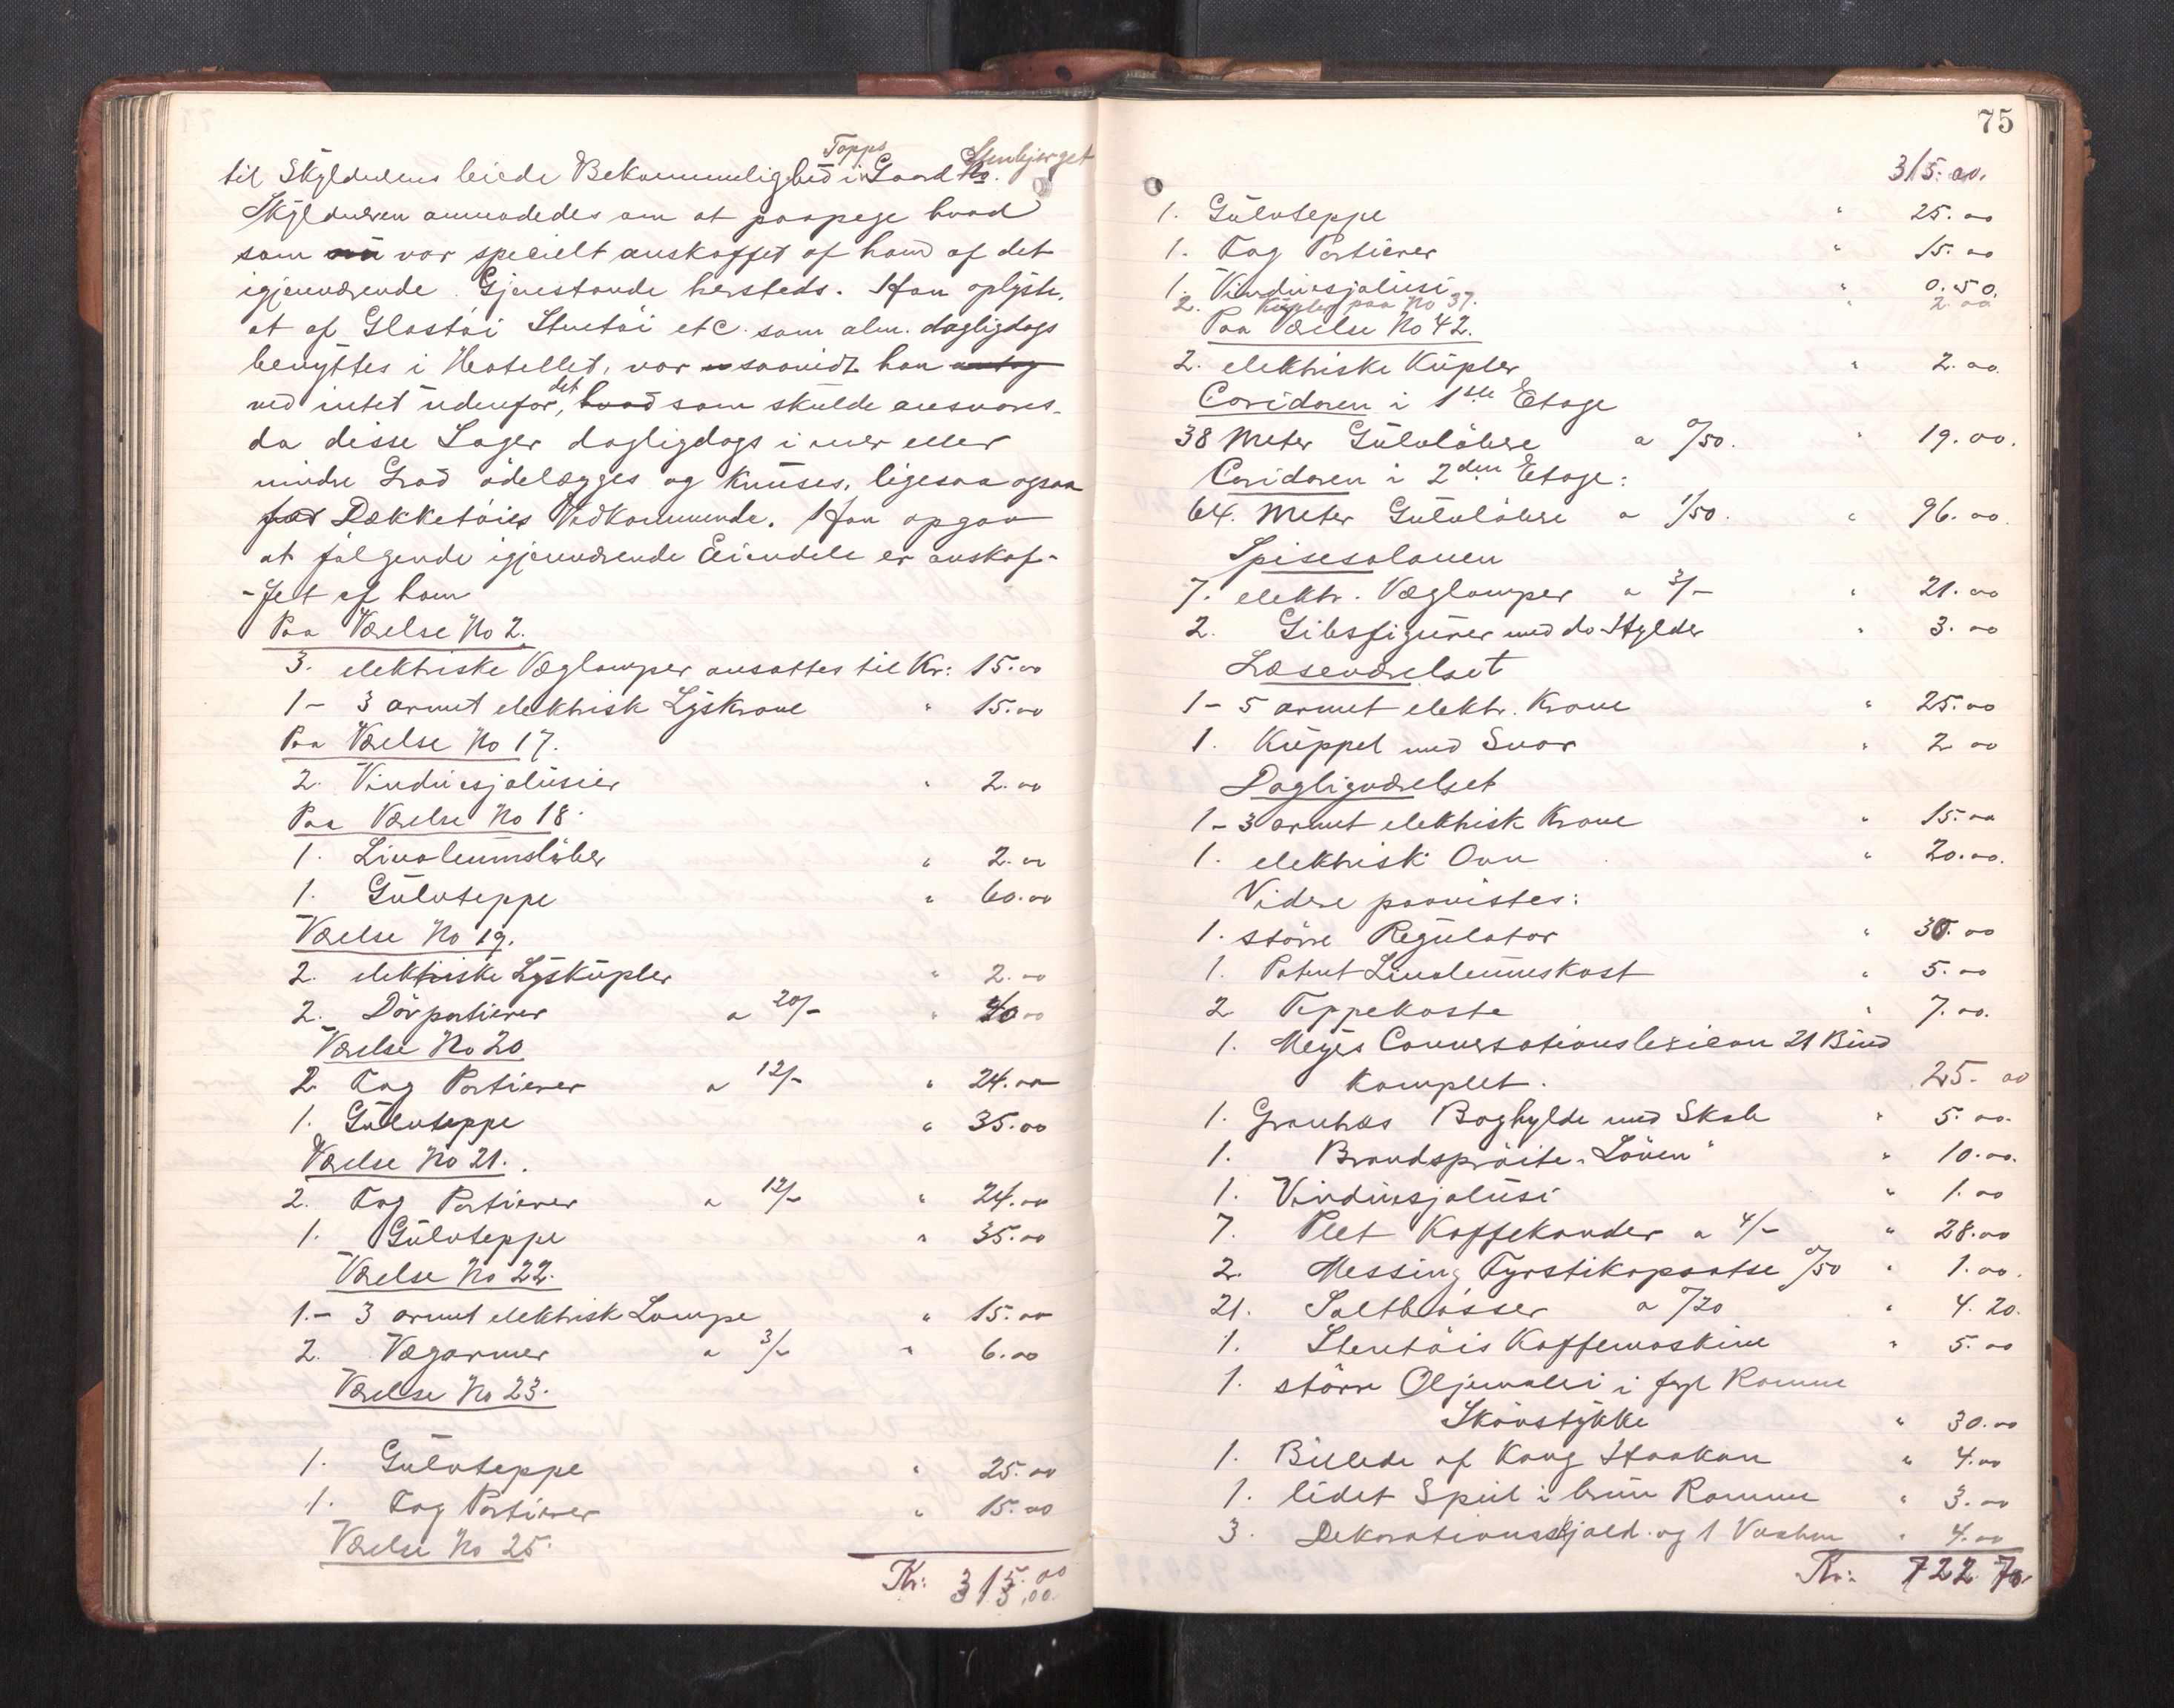 til Skyldneren leiede Bekvemmelighed i Topps Gaard No. Stenbjerget
Skyldneren anmodedes om at paapege hvad
som nu var specielt anskaffet af ham af det
igjenværende Gjenstande hersteds. Han oplyste,
at af Glastöi Stentöi etc. som alm. dagligdags
benyttes i Hotellet, var saavidt han antog
ved intet udenfor det, hvad som skulde ansvares,
da disse Sager dagligdags i mer eller
mindre Grad ödelægges og knuses, ligesaa ogsaa
for Dækketöies Vedkommende. Han opgav
at fölgende igjenværende Eiendele er anskaf-
-fet af ham
Paa Værelse No 2.
3. elektriske Væglamper ansattes til Kr: 15.00
1 - 3 armet elektrisk Lyskrone " 15.00
Paa Værelse No 17.
2. Vinduesjalusier " 2.00
Paa Værelse No 18.
1. Linoleumslöber " 2.00
1. Gulvteppe " 60.00
Værelse No 19.
2. elektriske Lyskupler " 2.00
2. Dörportierer a 20/- " 40.00
Værelse No 20
2 Fag Portierer a 12/- " 24.00
1. Gulvteppe " 35.00
Værelse No 21.
2. Fag Portierer a 12/- " 24.00
1. Gulvteppe " 35.00
Værelse No 22.
1.- 3 armet elektrisk Lampe " 15.00
2. Vægarmer a 3/- " 6.00
Værelse No 23.
1. Gulvteppe " 25.00
1. Fag Portierer " 15.00
Værelse No 25.
Kr: 315.00
315.00
75
315.00.
1. Gulvteppe " 25.00
1. Fag Portierer " 15.00
1. Vinduesjalusi " 0.50.
2. Kupler paa No 37. " 2.00
Paa Værelse No 42.
2. elektriske Kupler " 2.00.
Coridoren i 1ste Etage
38 Meter Gulvlöbere a 0/50. " 19.00.
Coridoren i 2den Etage:
64. Meter Gulvlöbere a 1/50. " 96.00.
Spisesalonen
7. elektr. Væglamper a 3/- " 21.00
2. Gibsfigurer med do Hylder " 3.00
Læseværelset
1 - 5 armet elektr. Krone " 25.00
1. Kuppel med Snor " 2 00
Dagligværelset
1 - 3 armet elektrisk Krone " 15.00
1. elektrisk Ovn " 20.00.
Videre paavistes:
1. större Regulator " 30.00
1. Patent Linoleumskost " 5.00
2 Teppekoste " 7.00.
1. Meyes Conversationslexicon 21 Bind
komplet. 25.00
1. Boghylde med Skab " 5.00.
1. Brandspröite "Löven" " 10.00.
1. Vinduesjalusi " 1.00
7. Plet Kaffekander a 4/- " 28.00
2. Messing Fyrstikopsatse 0/50 " 1.00.
21. Saltbösser a 0/20 " 4.20.
1. Stentöis Kaffemaskine " 5.00
1. större Oljemaleri i fgl Ramme
Skovstykke " 30.00
1. Billede af Kong Haakon " 4.00
1. lidet Speil i brun Ramme " 3.00
3. Dekorationsskjold og 1 " 4.00
Kr: 722.70